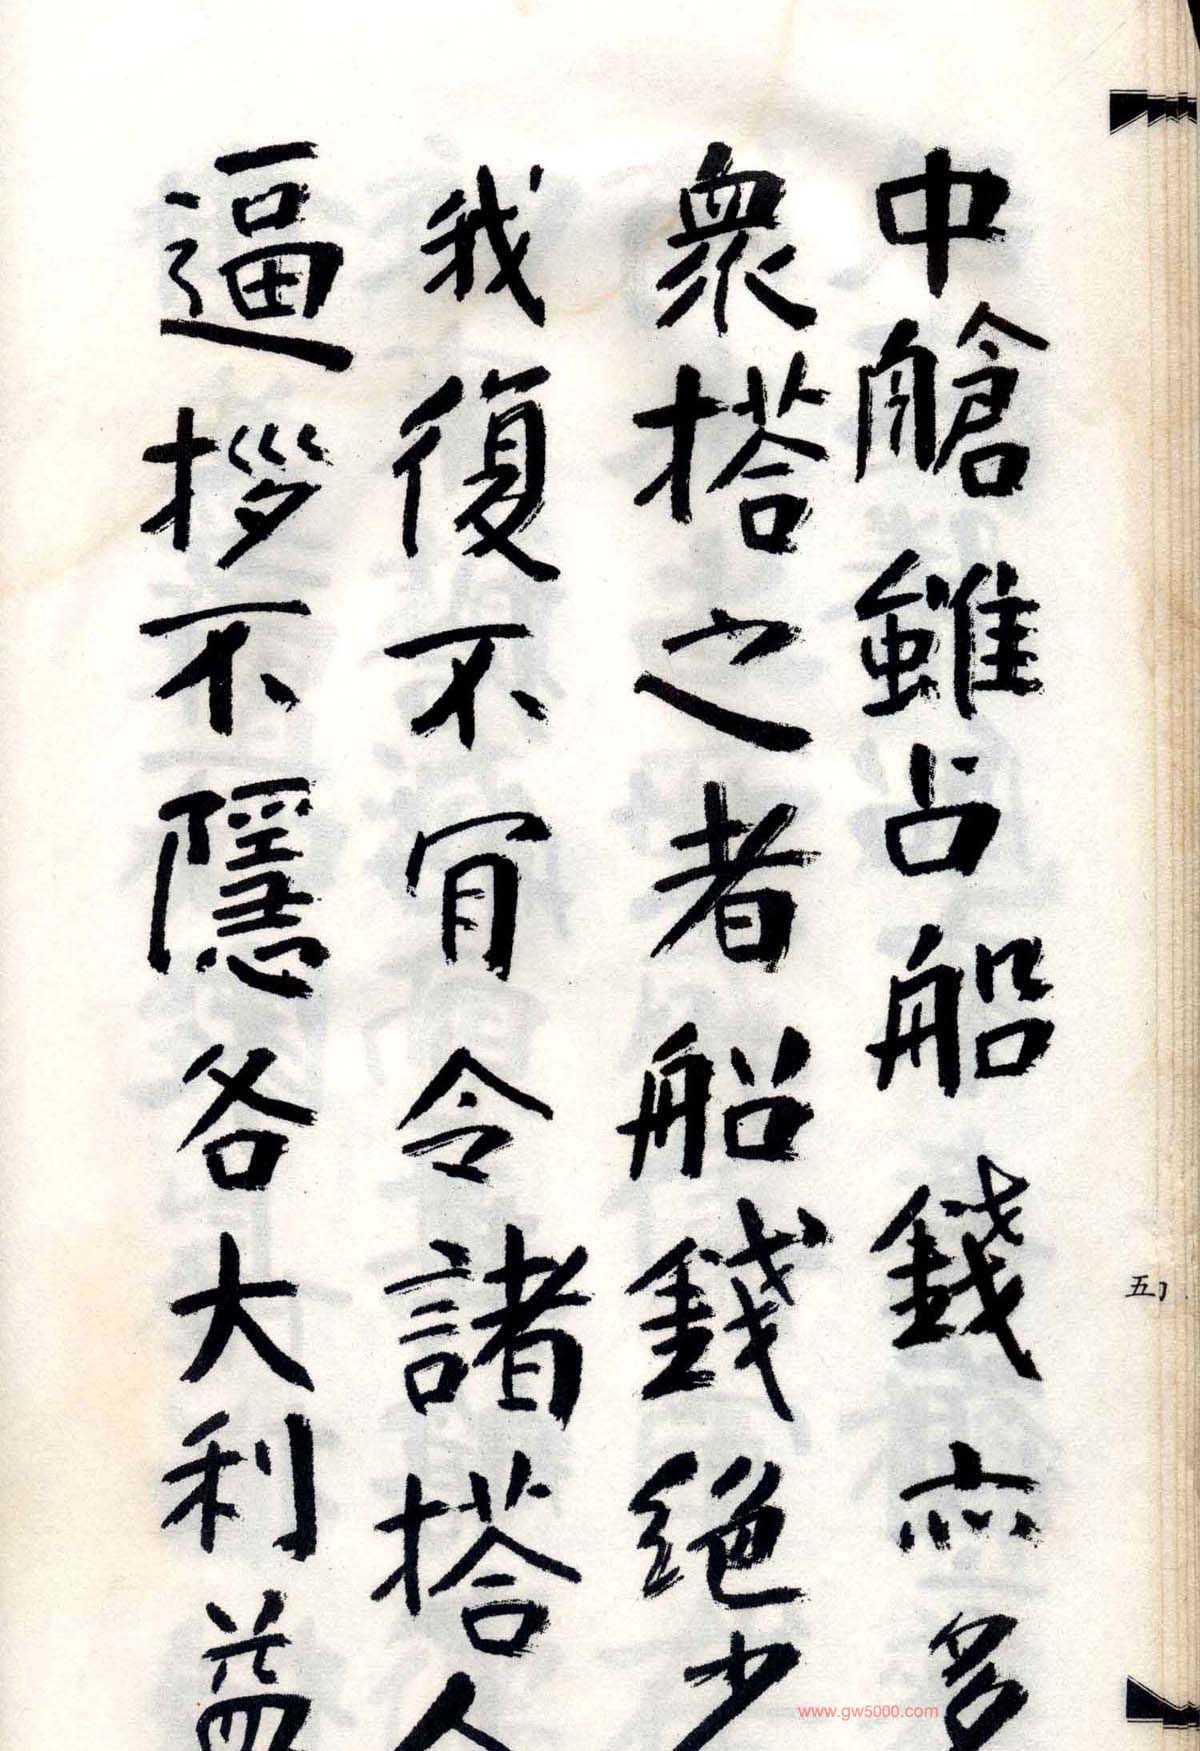 中艙雖占船錢亦多
衆搭之者船錢絶少
我復不冝令諸搭人
逼拶不隱各大利益
五
www.gw5000.com